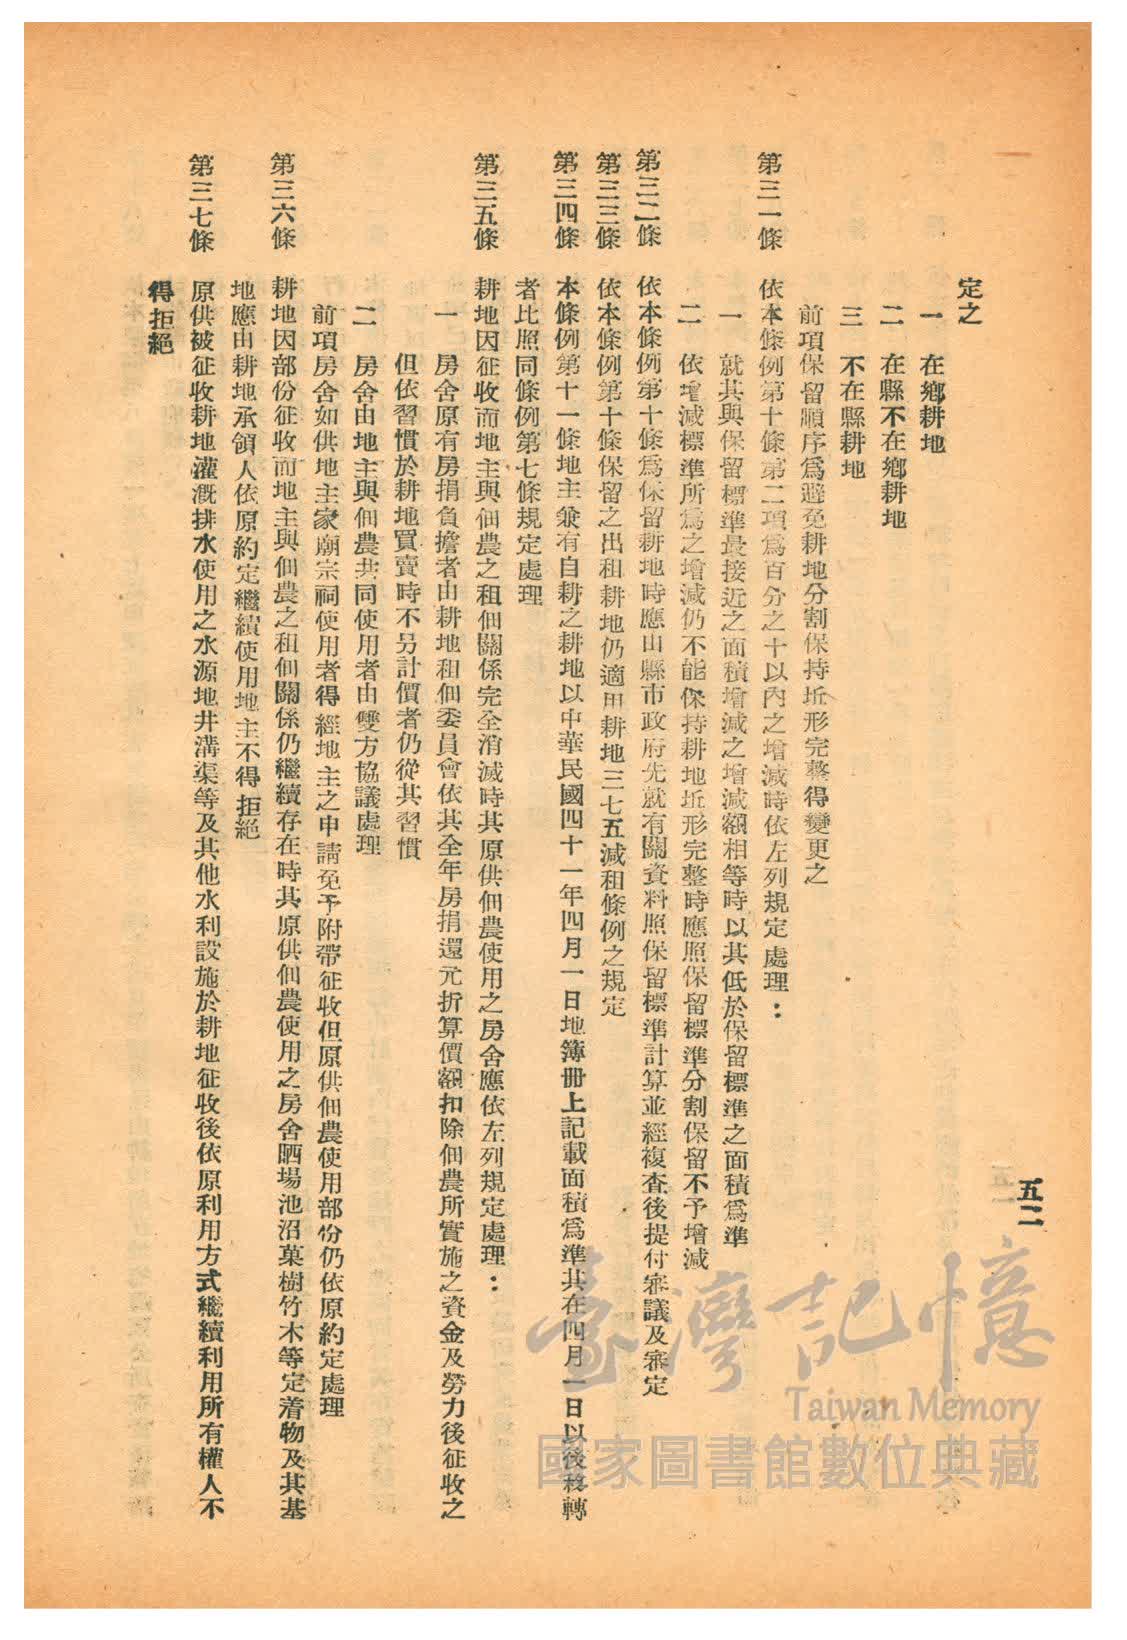 五二
定之
一　在鄉耕地
二　在縣不在鄉耕地
三　不在縣耕地
前項保留順序爲避免耕地分割保持坵形完整得變更之
第三一條　依本條例第十條第二項爲百分之十以內之增減時依左列規定處理：
一　就其與保留標準最接近之面積增減之增減額相等時以其低於保留標準之面積爲準
二　依增減標準所爲之增減仍不能保持耕地坵形完整時應照保留標準分割保留不予增減
第三二條　依本條例第十條爲保留耕地時應由縣市政府先就有關資料照保留標準計算並經複查後提付審議及審定
第三三條　依本條例第十條保留之出租耕地仍適用耕地三七五減租條例之規定
第三四條　本條例第十一條地主兼有自耕之耕地以中華民國四十一年四月一日地簿冊上記載面積爲準其在四月一日以後移轉
者比照同條例第七條規定處理
第三五條　耕地因征收而地主與佃農之租佃關係完全消滅時其原供佃農使用之房舍應依左列規定處理：
一　房舍原有房捐負擔者由耕地租佃委員會依其全年房捐還元折算價額扣除佃農所實施之資金及勞力後征收之
但依習慣於耕地買賣時不另計價者仍從其習慣
二　房舍由地主與佃農共同使用者由雙方協議處理
前項房舍如供地主家廟宗祠使用者得經地主之申請免予附帶征收但原供佃農使用部份仍依原約定處理
第三六條　耕地因部份征收而地主與佃農之租佃關係仍繼續存在時其原供佃農使用之房舍晒場池沼菓樹竹木等定着物及其基
地應由耕地承領人依原約定繼續使用地主不得拒絕
第三七條　原供被征收耕地灌漑排水使用之水源地井溝渠等及其他水利設施於耕地征收後依原利用方式繼續利用所有權人不
得拒絕
臺灣記憶
Taiwan Memory
國家圖書館數位典藏